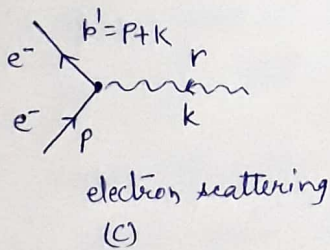 p'=P+K
e⁻
r
e⁻
k
p
electron scattering
(C)